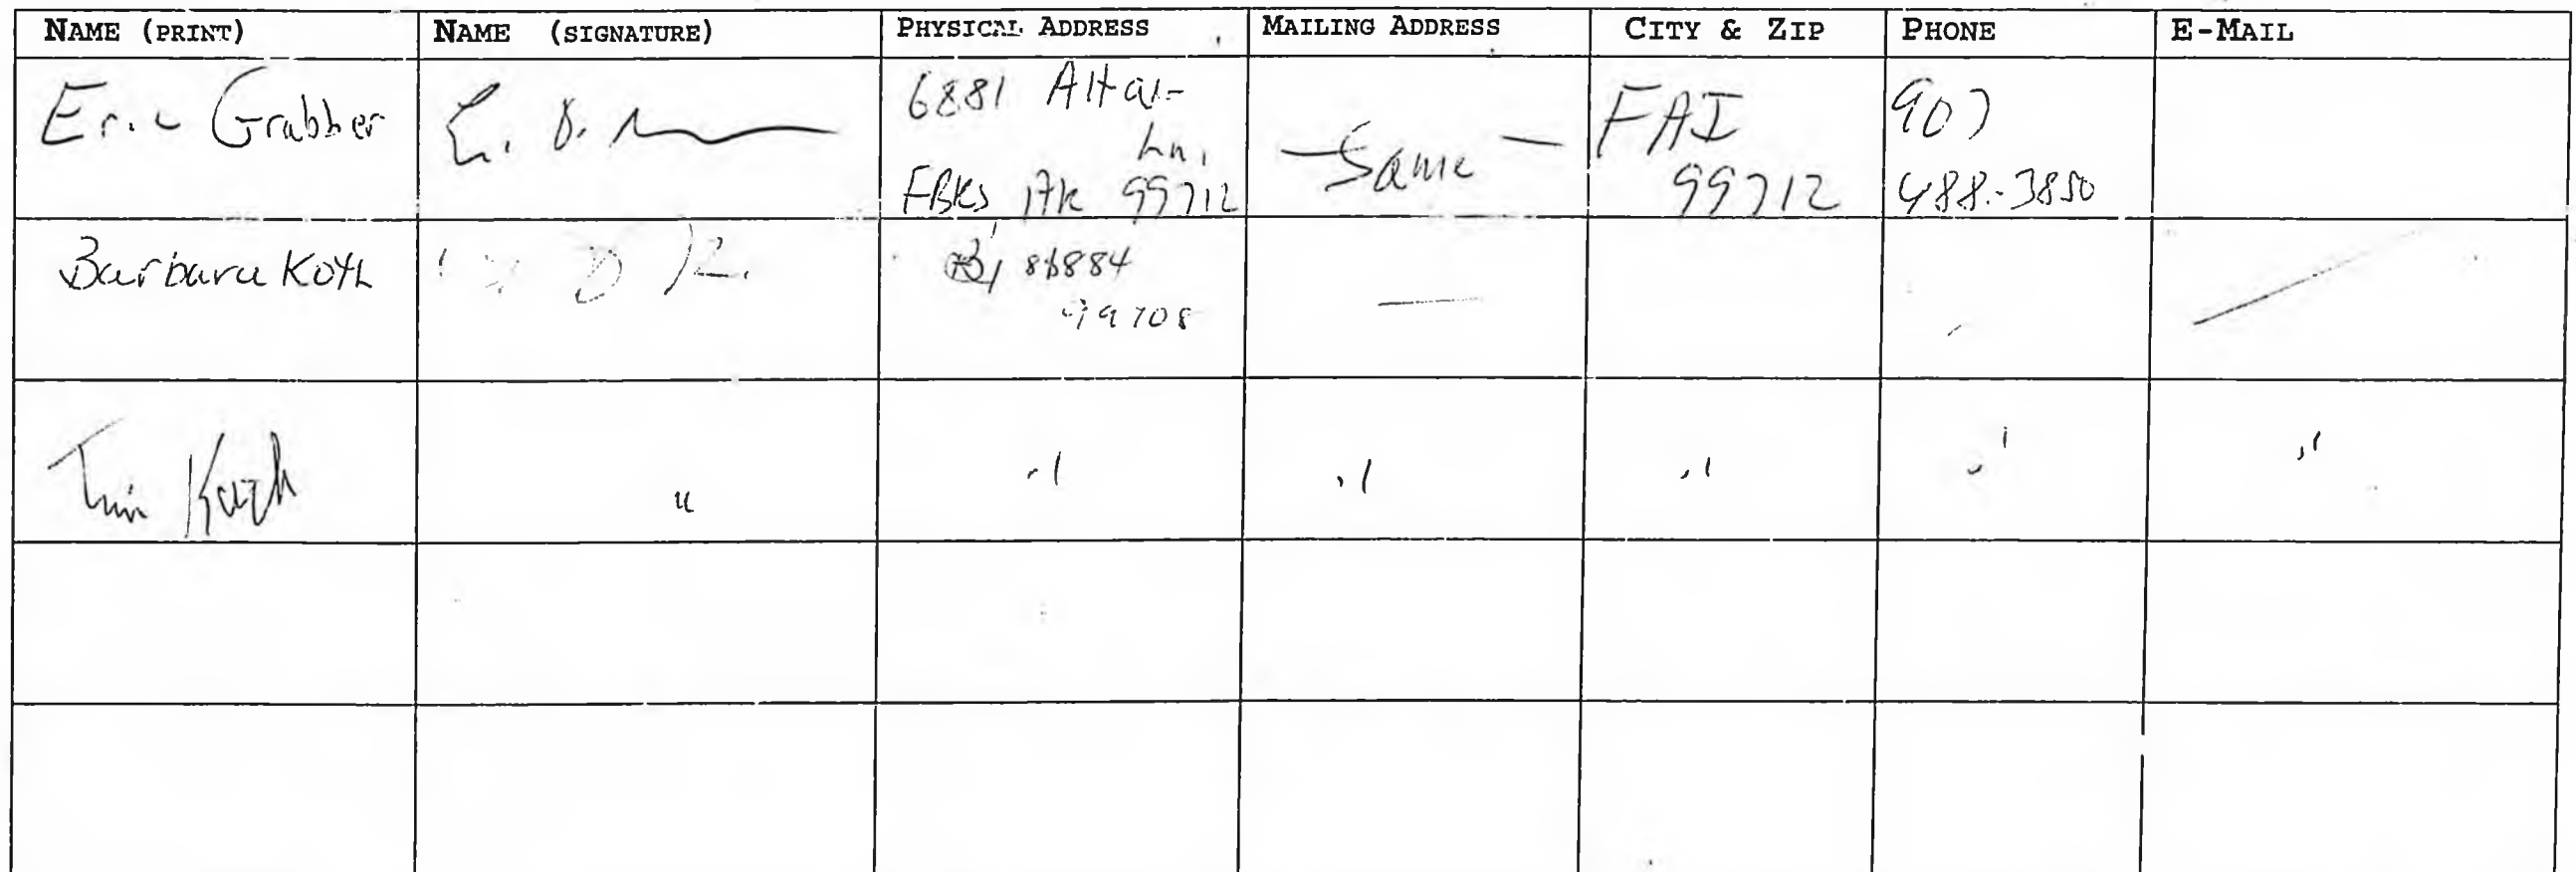 NAME (PRINT) NAME (SIGNATURE) PHYSICAL ADDRESS MAILING ADDRESS CITY & ZIP PHONE E-MAIL
Eric Grabber
6881 Altair
Ln.
FBKS AK 99712
Same
FAI
99712
907
488-3850
Barbara Koth
99708
Tim
"
"
"
"
"
"